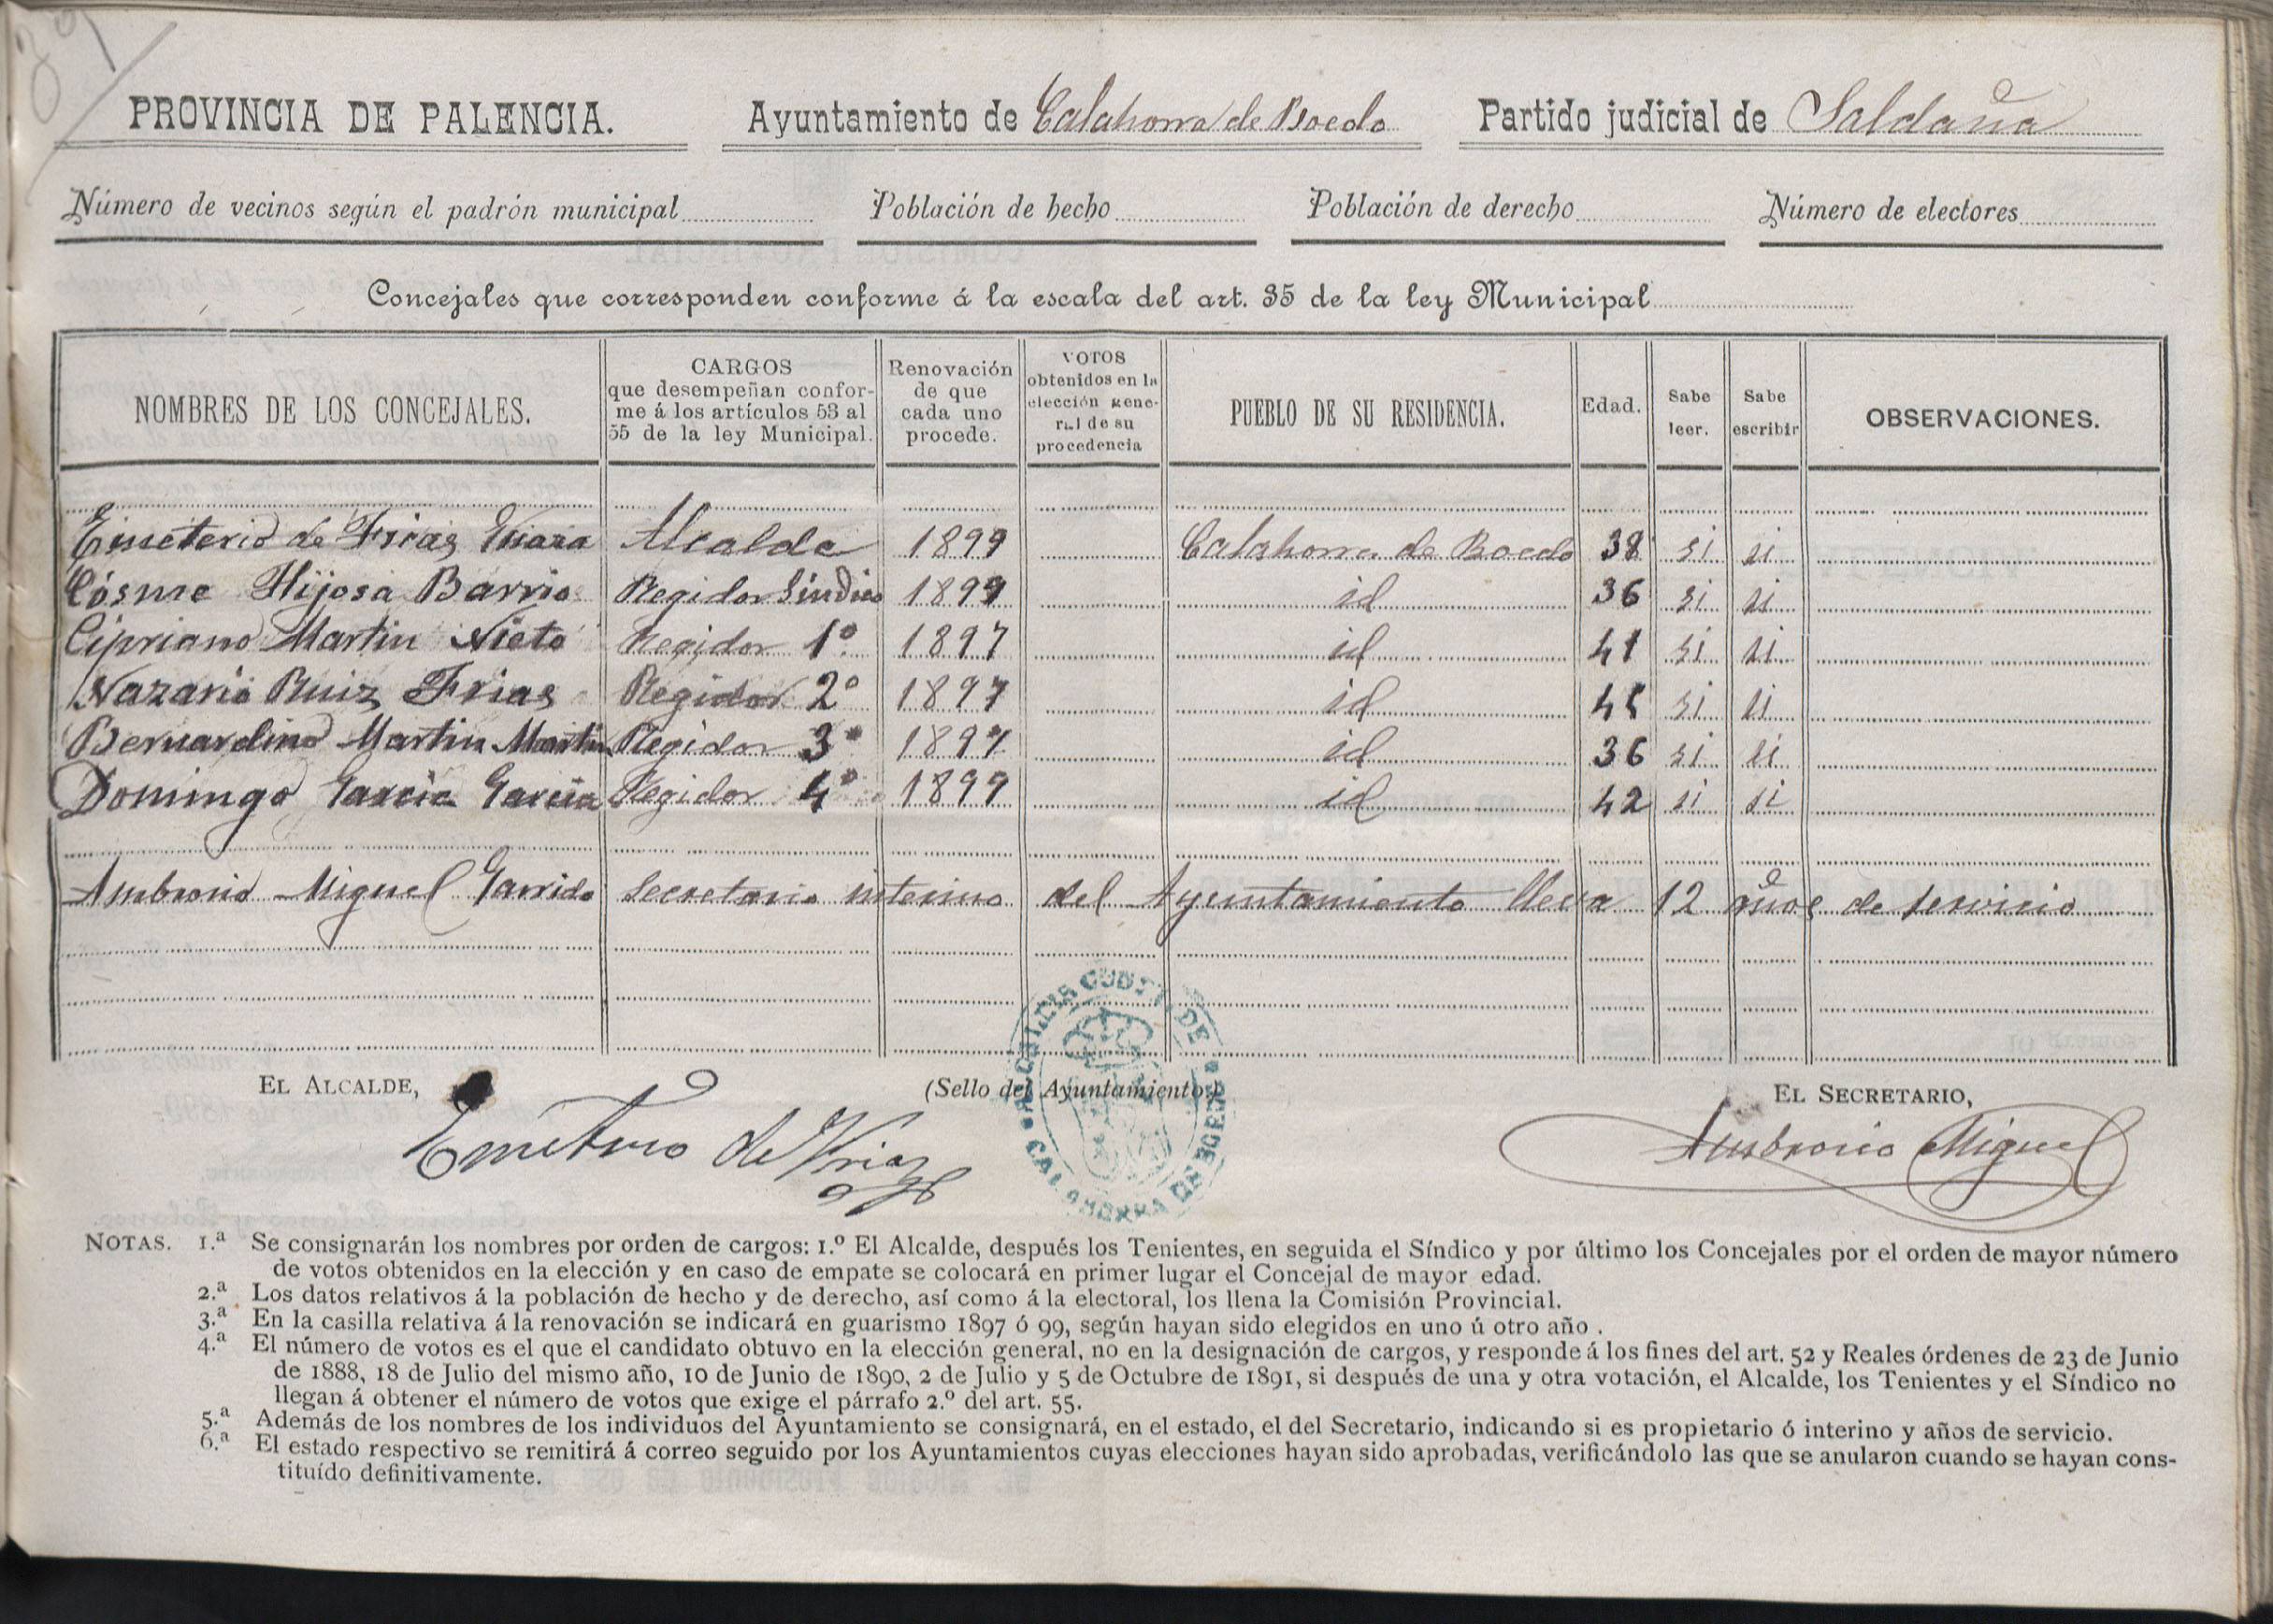 PROVINCIA DE PALENCIA. Ayuntamiento de Calahorra de Boedo Partido judicial de Saldaña
Número de vecinos según el padrón municipal Población de hecho Población de derecho Número de electores
Concejales que corresponden conforme á la escala del art. 35 de la ley Municipal
NOMBRES DE LOS CONCEJALES.
CARGOS
que desempeñan confor-
me á los artículos 53 al
55 de la ley Municipal.
Renovación
de que
cada uno
procede.
VOTOS
obtenidos en la
elección gene-
ral de su
procedencia
PUEBLO DE SU RESIDENCIA.
Edad.
Sabe
leer.
Sabe
escribir
OBSERVACIONES.
Emeterio de Frias Alcalde 1899 Calahorra de Boedo 38 si si
Cósme Hijosa Barrio Regidor Síndico 1899 id 36 si si
Cipriano Martin Nieto Regidor 1º 1897 id 41 si si
Nazario Ruiz Frias Regidor 2º 1897 id si si
Bernardino Martin Martin Regidor 3º 1897 id 36 si si
Domingo Garcia Garcia Regidor 4º 1899 id 42 si si
Ambrosio Miguel Garrido Secretario interino del Ayuntamiento lleva 12 años de servicio
EL ALCALDE, (Sello del Ayuntamiento.) EL SECRETARIO,
Emeterio de Frias
Ambrosio Miguel
CALAHORRA DE BOEDO
NOTAS. 1.ª Se consignarán los nombres por orden de cargos: 1.º El Alcalde, después los Tenientes, en seguida el Síndico y por último los Concejales por el orden de mayor número
de votos obtenidos en la elección y en caso de empate se colocará en primer lugar el Concejal de mayor edad.
2.ª Los datos relativos á la población de hecho y de derecho, así como á la electoral, los llena la Comisión Provincial.
3.ª En la casilla relativa á la renovación se indicará en guarismo 1897 ó 99, según hayan sido elegidos en uno ú otro año .
4.ª El número de votos es el que el candidato obtuvo en la elección general, no en la designación de cargos, y responde á los fines del art. 52 y Reales órdenes de 23 de Junio
de 1888, 18 de Julio del mismo año, 10 de Junio de 1890, 2 de Julio y 5 de Octubre de 1891, si después de una y otra votación, el Alcalde, los Tenientes y el Síndico no
llegan á obtener el número de votos que exige el párrafo 2.º del art. 55.
5.ª Además de los nombres de los individuos del Ayuntamiento se consignará, en el estado, el del Secretario, indicando si es propietario ó interino y años de servicio.
6.ª El estado respectivo se remitirá á correo seguido por los Ayuntamientos cuyas elecciones hayan sido aprobadas, verificándolo las que se anularon cuando se hayan cons-
tituído definitivamente.